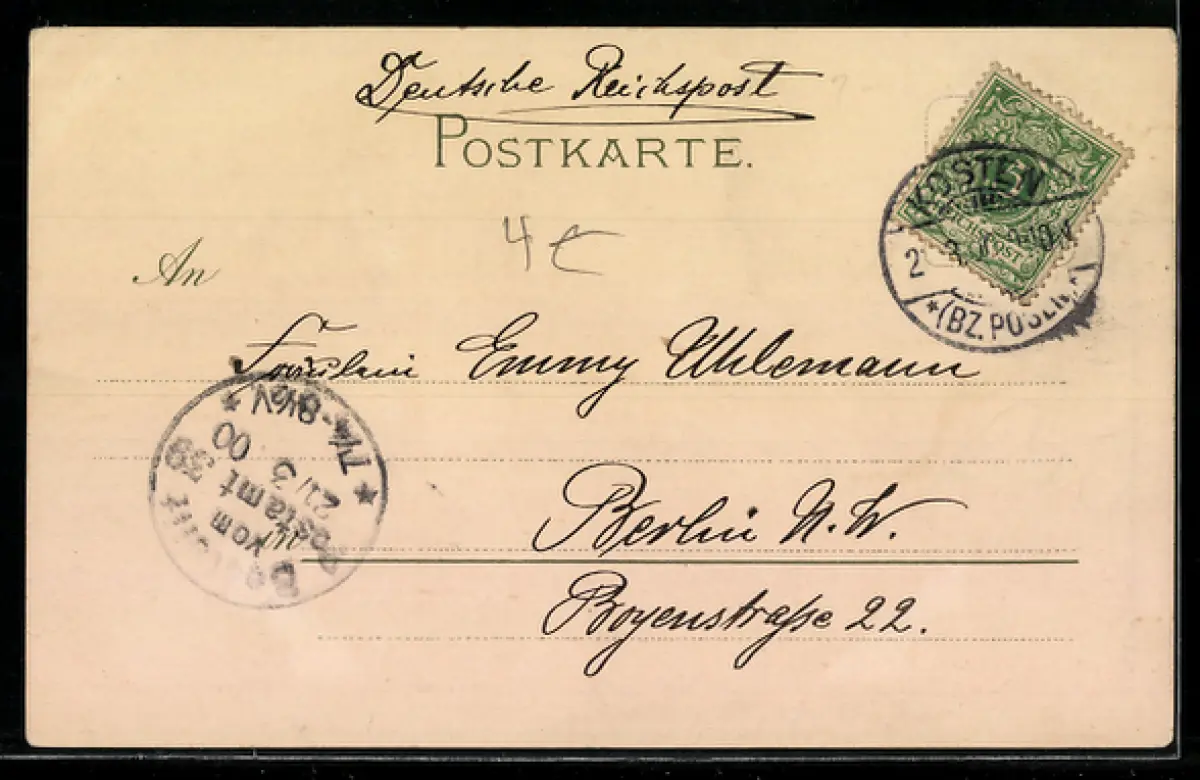 Deutsche Reichspost
POSTKARTE.
5
REICHSPOST
KOSTEN
*(BZ. POSEN)
4 €
An
Fräulein Emmy Uhlemann
Berlin N.W.
Boyenstraße 22.
Bestellt
vom
Postamt 39
21/3 00
* 7¼-8½V *